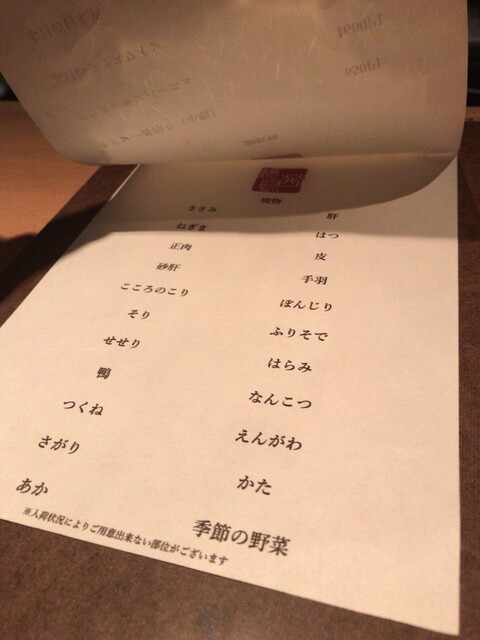 焼物
ささみ
ねぎま
正肉
砂肝
こころのこり
そり
せせり
鴨
つくね
さがり
あか
肝
はつ
皮
手羽
ぼんじり
ふりそで
はらみ
なんこつ
えんがわ
かた
季節の野菜
※入荷状況によりご用意出来ない部位がございます
1600円
650円